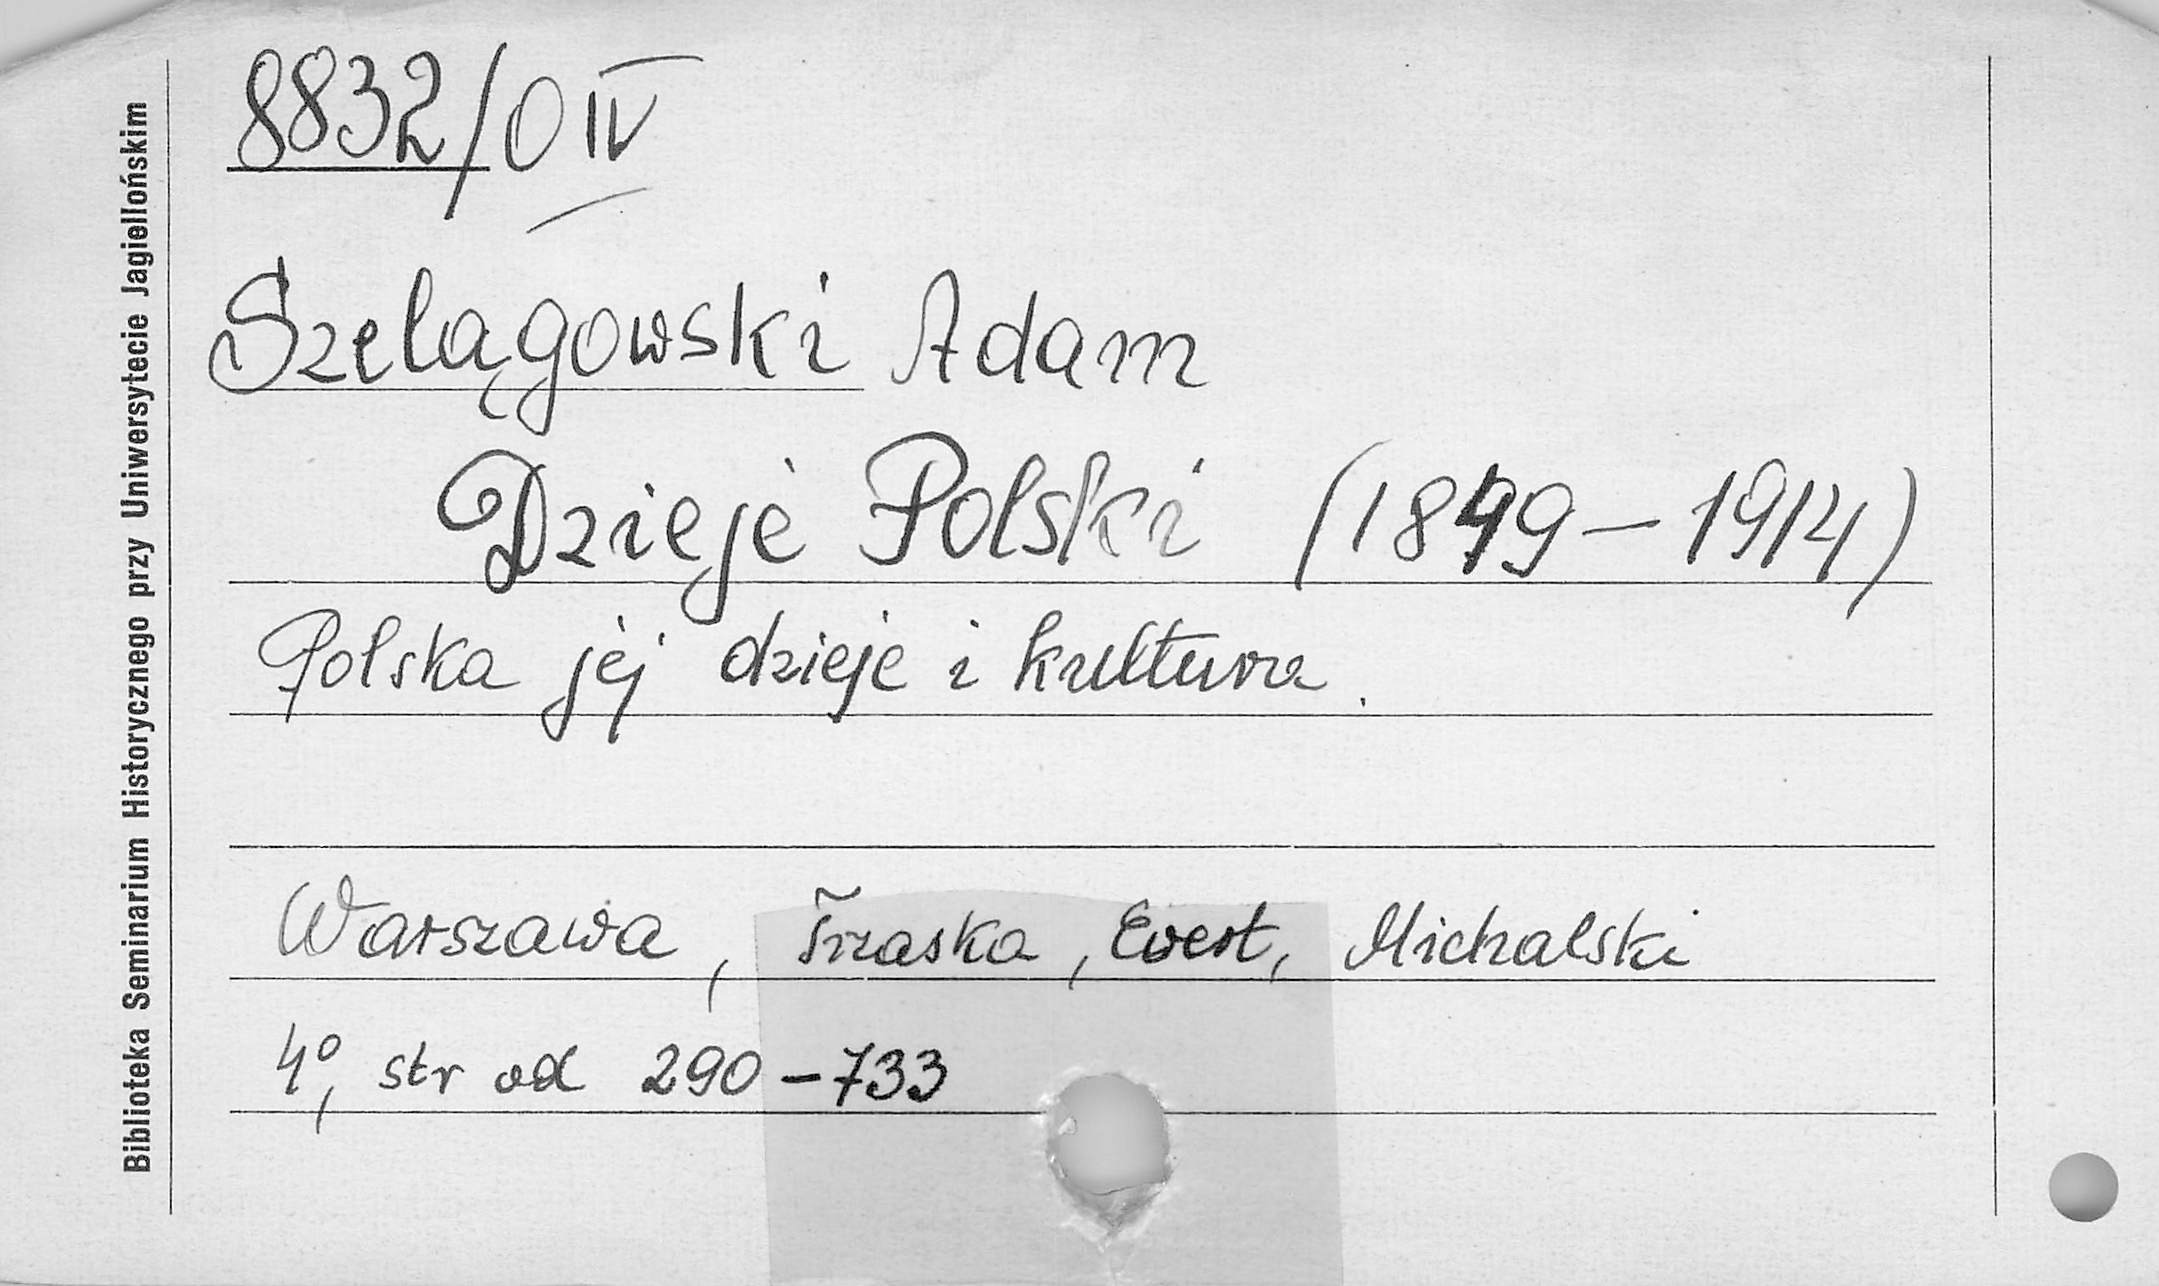 8832/O IV
Szelągowski Adam
Dzieje Polski (1849-1914)
Polska jej dzieje i kultura.
Warszawa, Trzaska, Evert, Michalski
4°, str od 290-733
Biblioteka Seminarium Historycznego przy Uniwersytecie Jagiellońskim